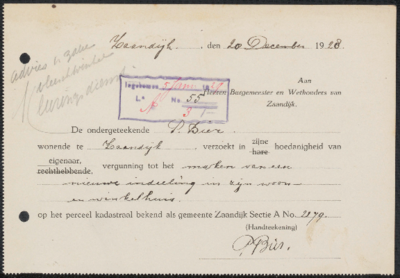 Zaandijk, den 20 December 1928
advies v. zaan
Aan
Heeren Burgemeester en Wethouders van
Zaandijk.
Ingekomen
La No. 55
De ondergeteekende P. Bier
wonende te Zaandijk verzoekt in zijne hare hoedanigheid van
eigenaar, rechthebbende, vergunning tot het maken van een
nieuwe indeeling in zijn woon-
en winkelhuis.
op het perceel kadastraal bekend als gemeente Zaandijk Sectie A No. 2179.
(Handteekening)
P. Bier.